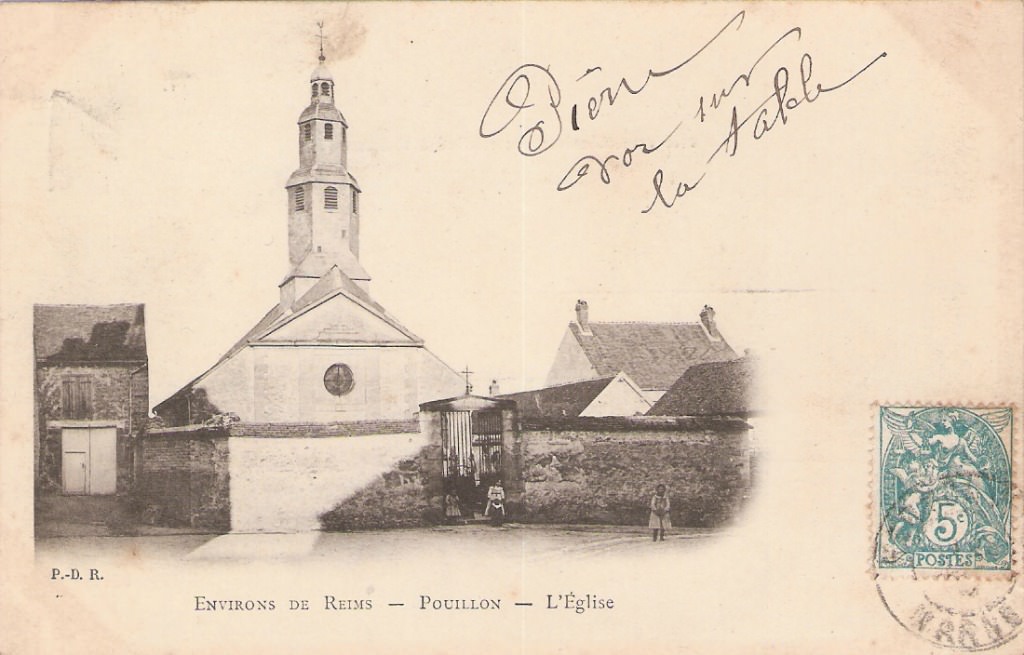 Bière
vor sur
la table
5c
POSTES
P.-D. R.
ENVIRONS DE REIMS — POUILLON — L'ÉGLISE
MARNE